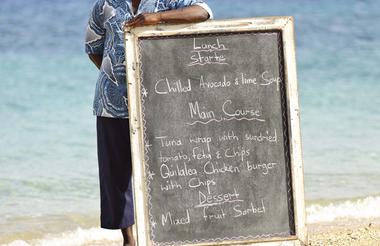 Lunch
starts
* Chilled Avocado & lime Soup
Main Course
* Tuna wrap with sundried
tomato, feta & Chips
* Quilalea Chicken burger
with Chips
Dessert
* Mixed fruit Sorbet